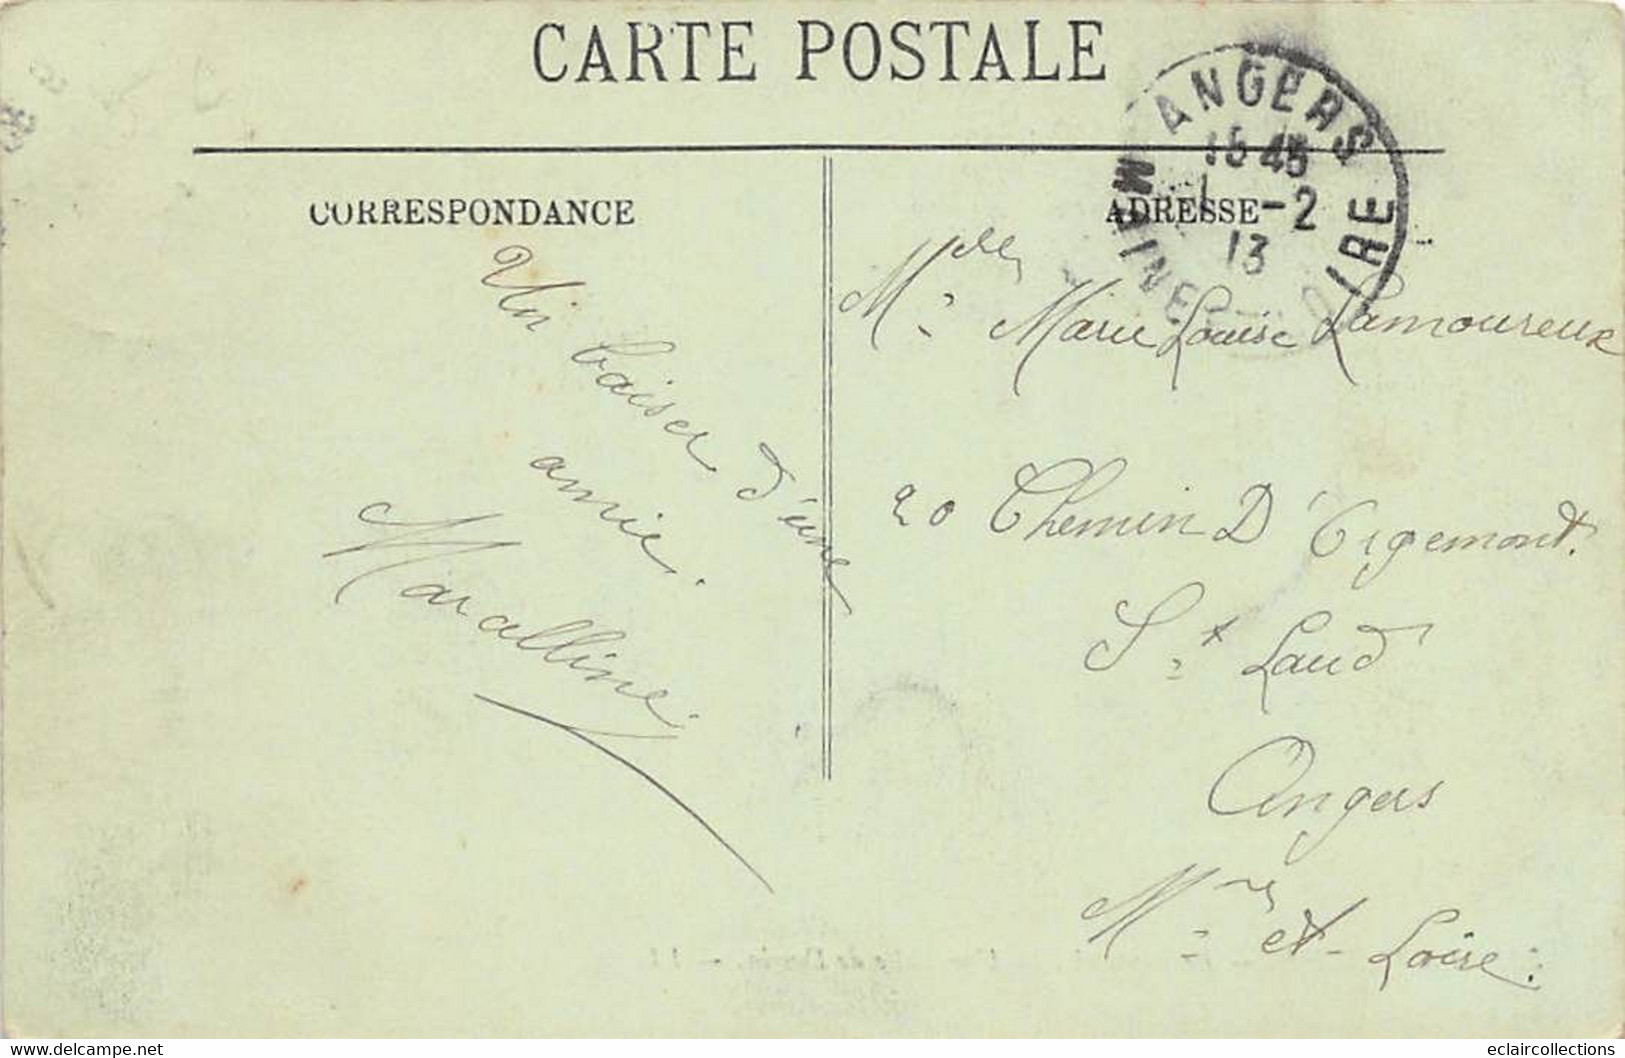 CARTE POSTALE
CORRESPONDANCE
Un baiser d'une
amie.
Maralline
ADRESSE
ANGERS
15 45
1 -2
13
MAINE ET LOIRE
Melle Marie Louise Lamoureux
20 Chemin D'Orgemont.
St Laud
Angers
Mne et Loire.
www.delcampe.net
eclaircollections